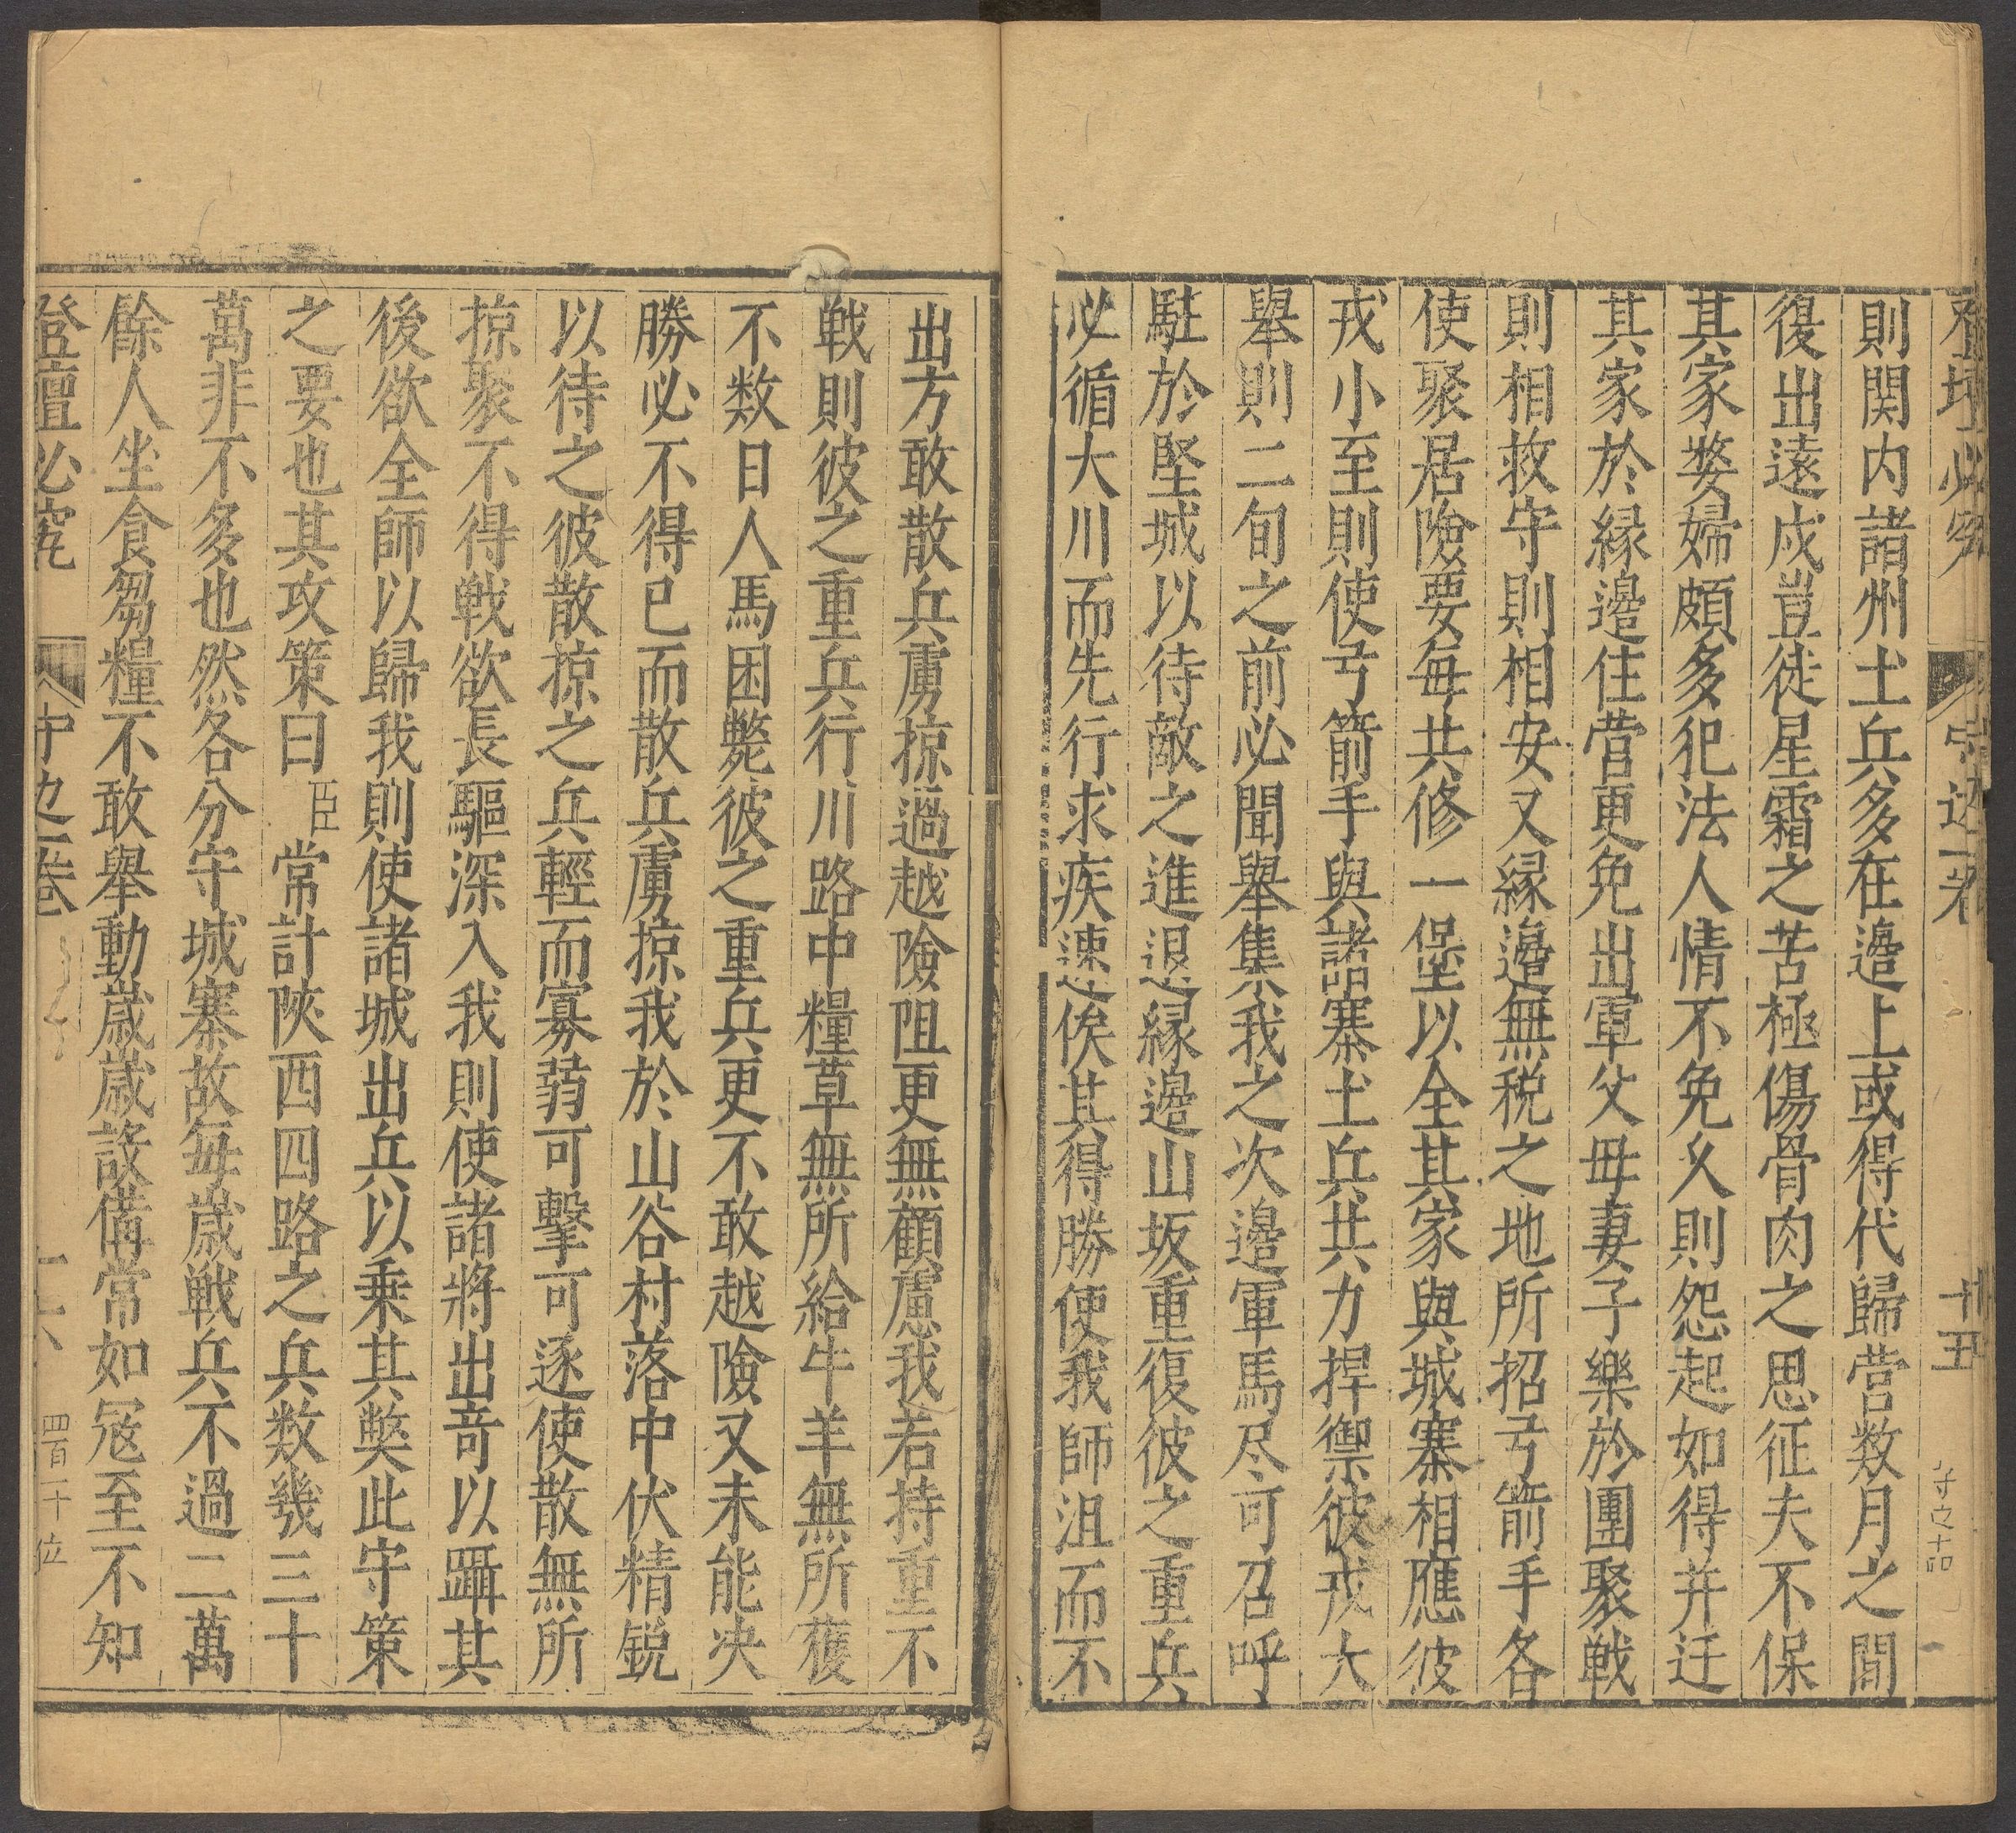 登壇必究 守邊一卷 十五
則関内諸州土兵多在邉上或得代歸营数月之間
復出遠戍豈徒星霜之苦極傷骨肉之思征夫不保
其家嫠婦頗多犯法人情不免乆則怨起如得并迁
其家於緣邉住营更免出軍父母妻子樂於團聚戦
則相救守則相安又緣邉無税之地所招弓箭手各
使聚居險要每共修一堡以全其家與城寨相應彼
戎小至則使弓箭手與諸寨土兵共力捍禦彼戎大
舉則二旬之前必聞舉集我之次邉軍馬尽可召呼
駐於堅城以待敵之進退緣邉山坂重復彼之重兵
必循大川而先行求疾速俟其得勝使我師沮而不
出方敢散兵虜掠過越險阻更無顧慮我若持重不
戦則彼之重兵行川路中糧草無所給牛羊無所獲
不数日人馬困斃彼之重兵更不敢越險又未能决
勝必不得已而散兵虜掠我於山谷村落中伏精銳
以待之彼散掠之兵輕而寡弱可擊可逐使散無所
掠聚不得戦欲長驅深入我則使諸將出奇以躡其
後欲全師以歸我則使諸城出兵以乗其獘此守策
之要也其攻策曰臣常計陝西四路之兵数幾三十
萬非不多也然各分守城寨故每歲戦兵不過二萬
餘人坐食芻糧不敢舉動歲歲設備常如冦至不知
登壇必究 守边一卷 十六 四百二十位